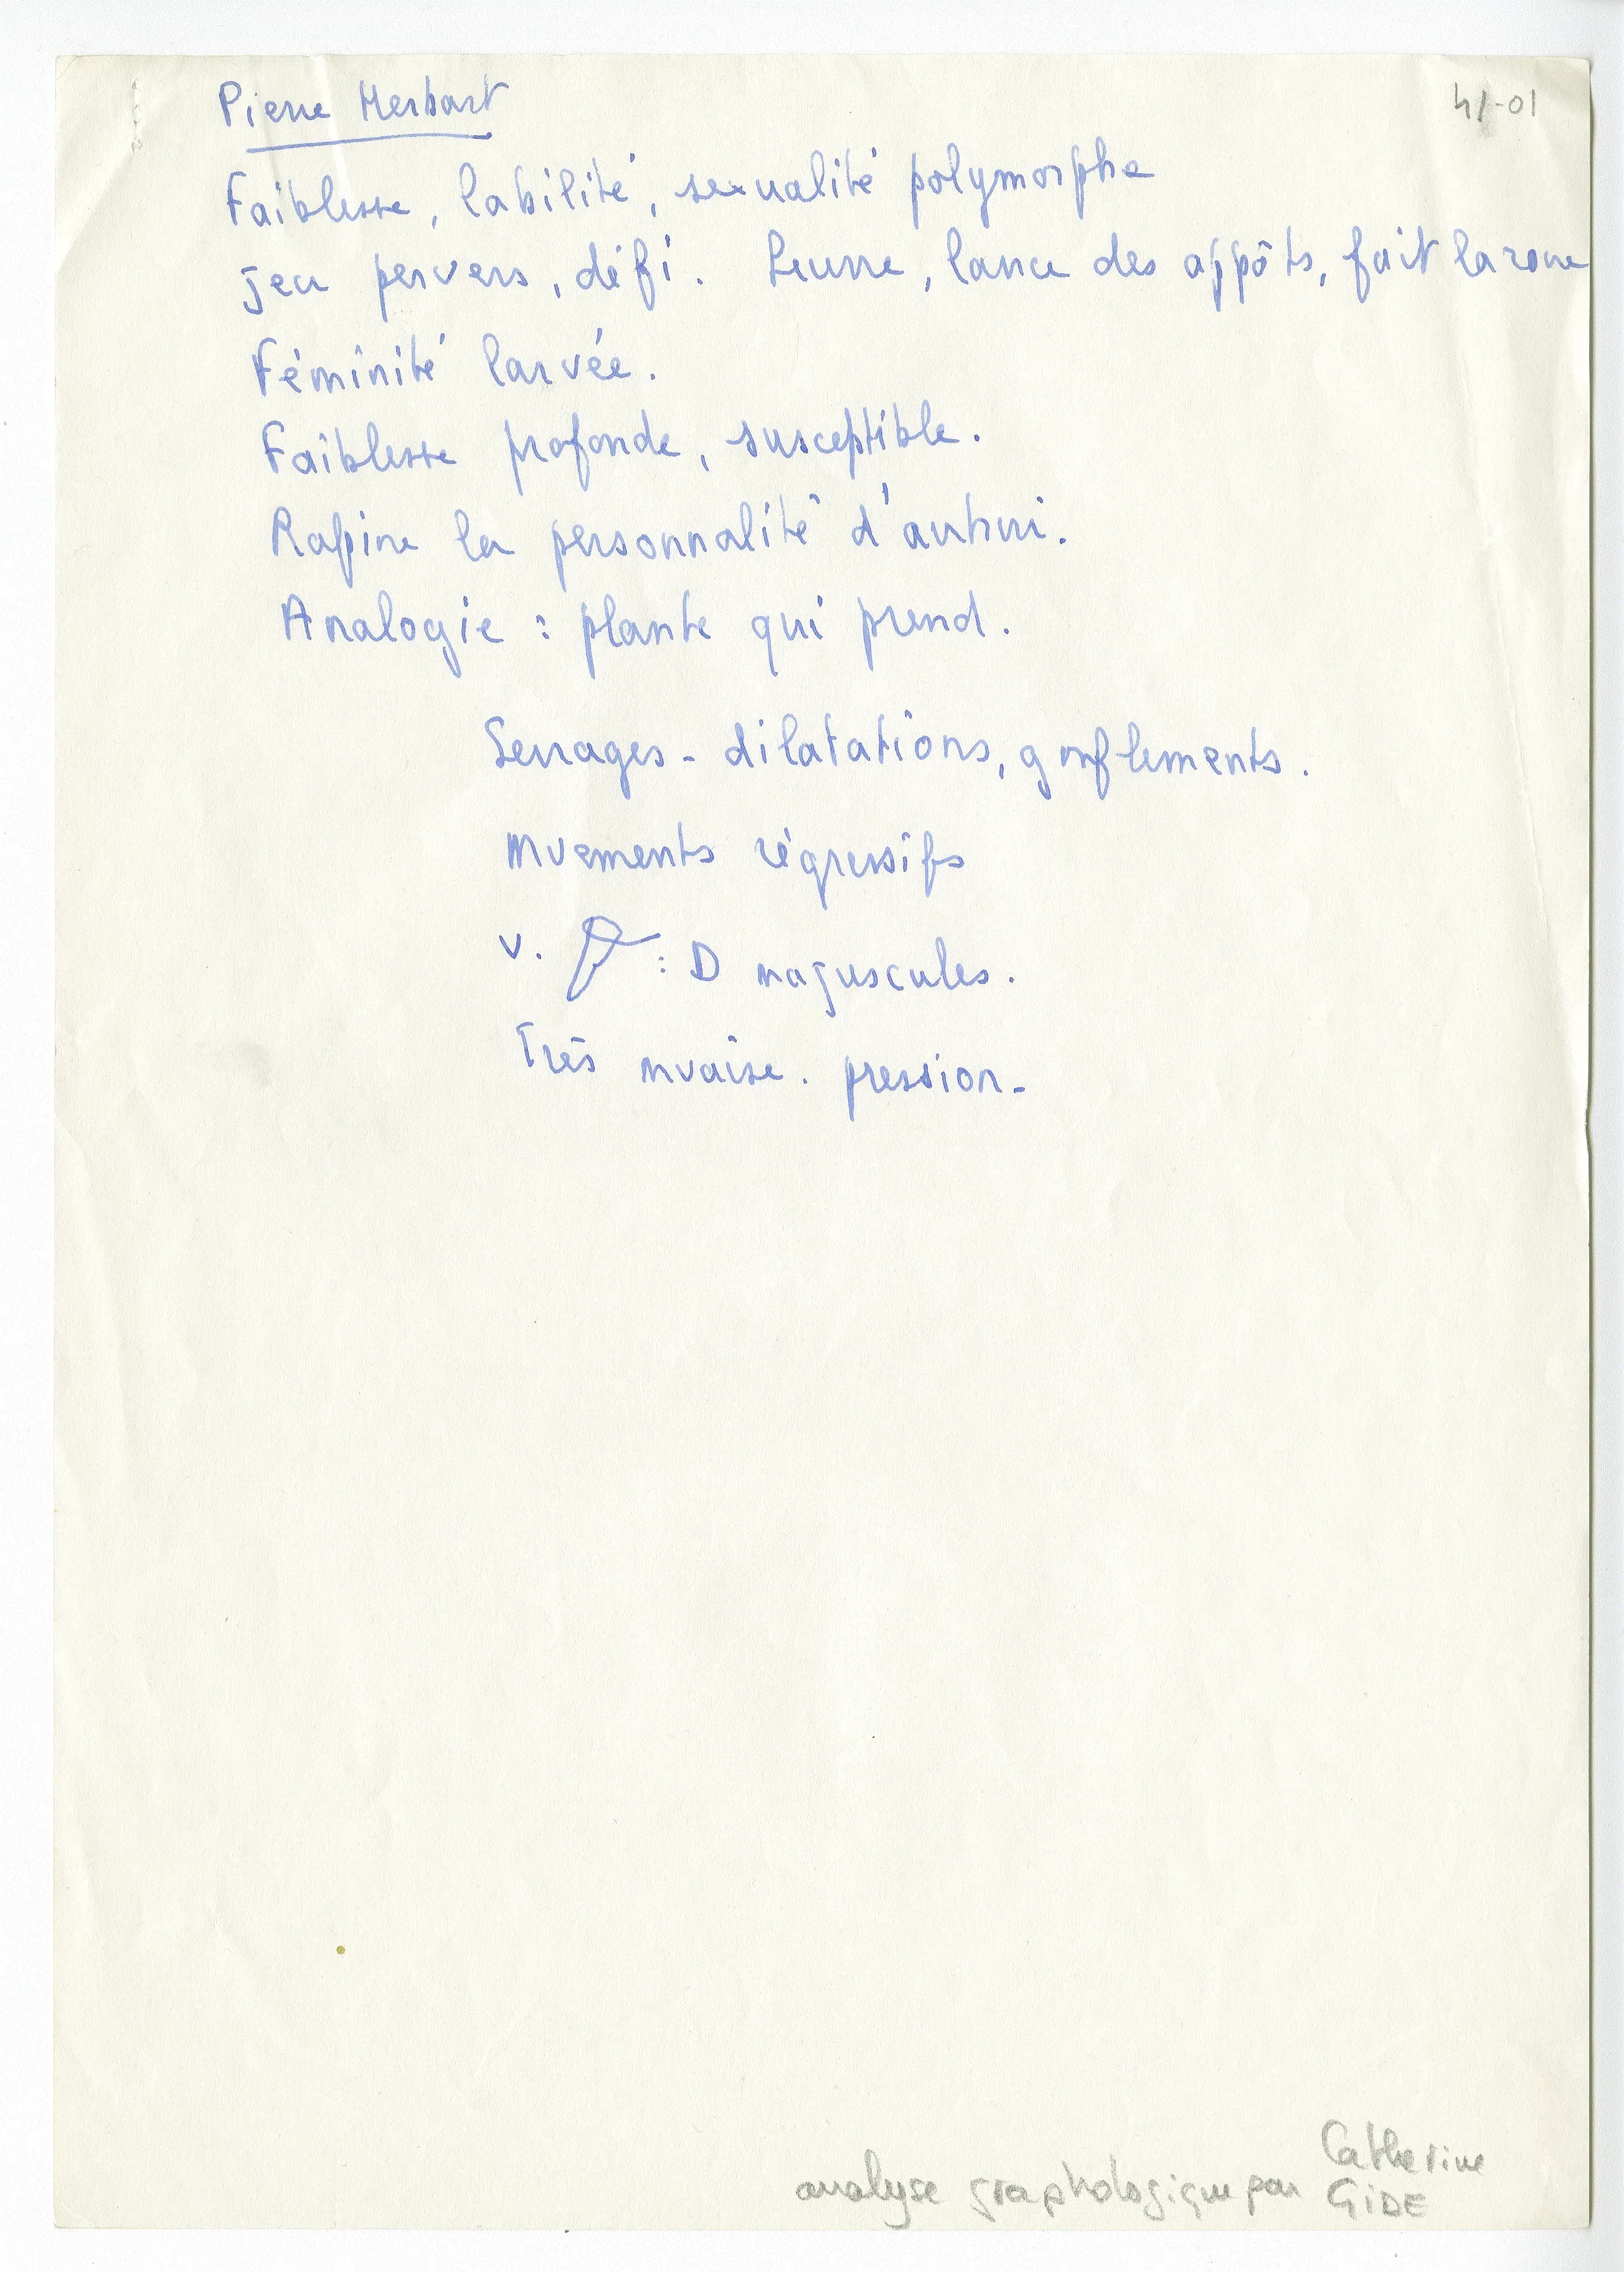 Pierre Herbart
41-01
Faiblesse, labilité, sexualité polymorphe
jeu pervers, défi. Leurre, lance des appôts, fait la roue
Féminité larvée.
Faiblesse profonde, susceptible.
Rapine la personnalité d'autrui.
Analogie : plante qui prend.
Serrages - dilatations, gonflements.
mvements régressifs
v. : D majuscules.
Très mvaise. pression-
Catherine
analyse graphologique par GIDE